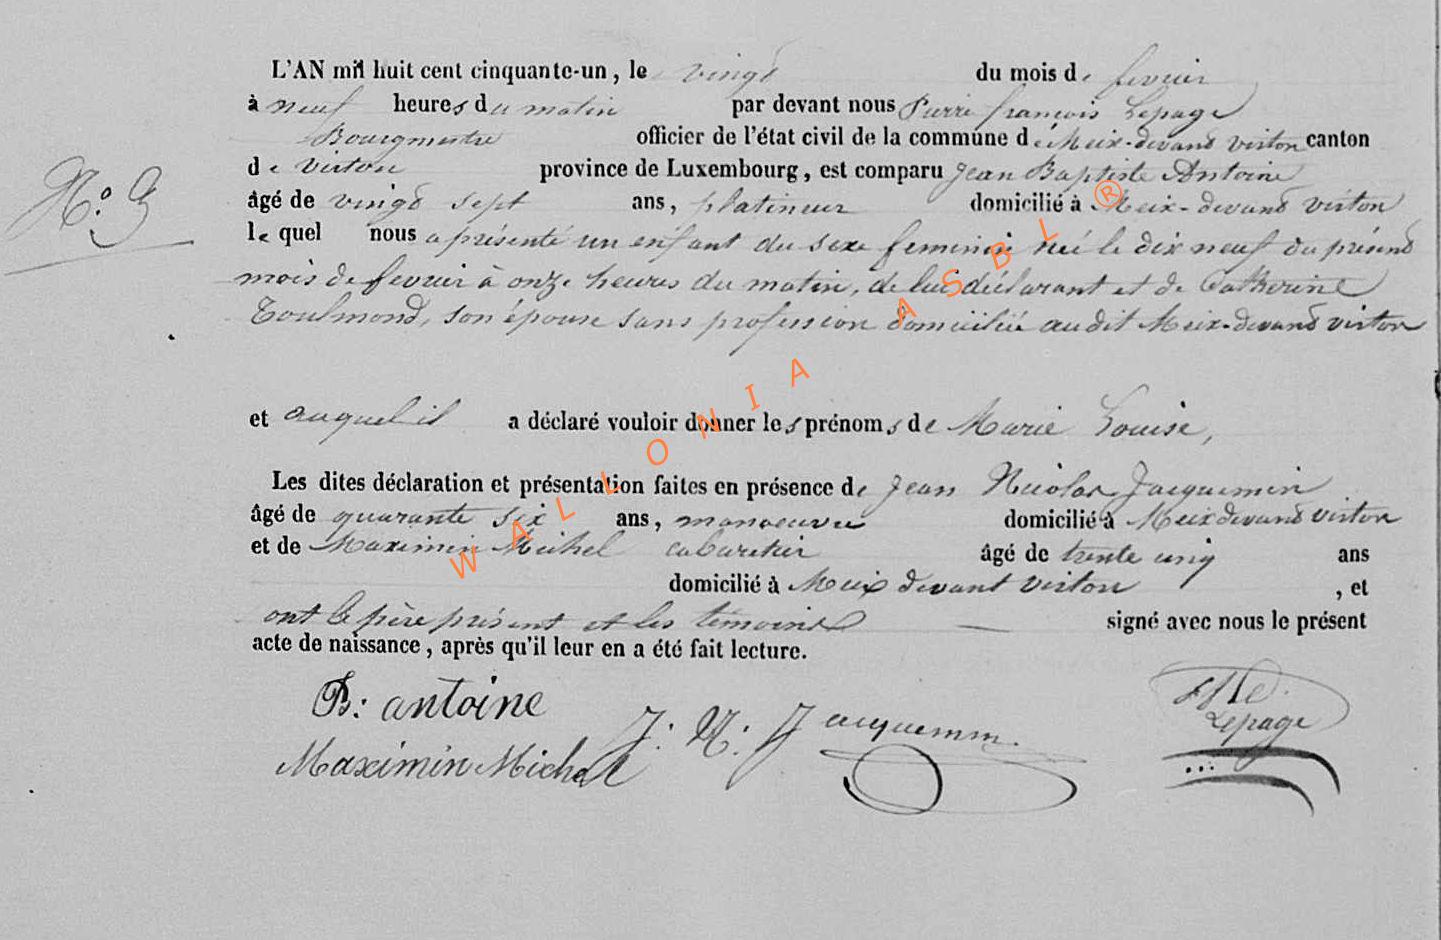 L'AN mil huit cent cinquante-un, le vingt du mois de fevrier
à neuf heures du matin par devant nous Pierre françois Lepage
Bourgmestre officier de l'état civil de la commune de Meix-devant virton canton
de virton province de Luxembourg, est comparu Jean Baptiste Antoine
N.° 9
âgé de vingt sept ans, platineur domicilié à Meix-devant virton
lequel nous a présenté un enfant du sexe feminin né le dix neuf du présent
mois de fevrier à onze heures du matin, de lui déclarant et de Catherine
Toulmond, son épouse sans profession domiciliée audit Meix-devant virton
et auquel il a déclaré vouloir donner les prénoms de Marie Louise,
Les dites déclaration et présentation faites en présence de Jean Nicolas Jacquemin
âgé de quarante six ans, manoeuvre domicilié à Meix devant virton
et de Maximin Michel cabaretier âgé de trente cinq ans
domicilié à Meix devant virton , et
ont le père présent et les témoins signé avec nous le présent
acte de naissance, après qu'il leur en a été fait lecture.
B: antoine
J: N: Jacquemin.
Lepage
Maximin Michel
WALLONIA ASBL ®